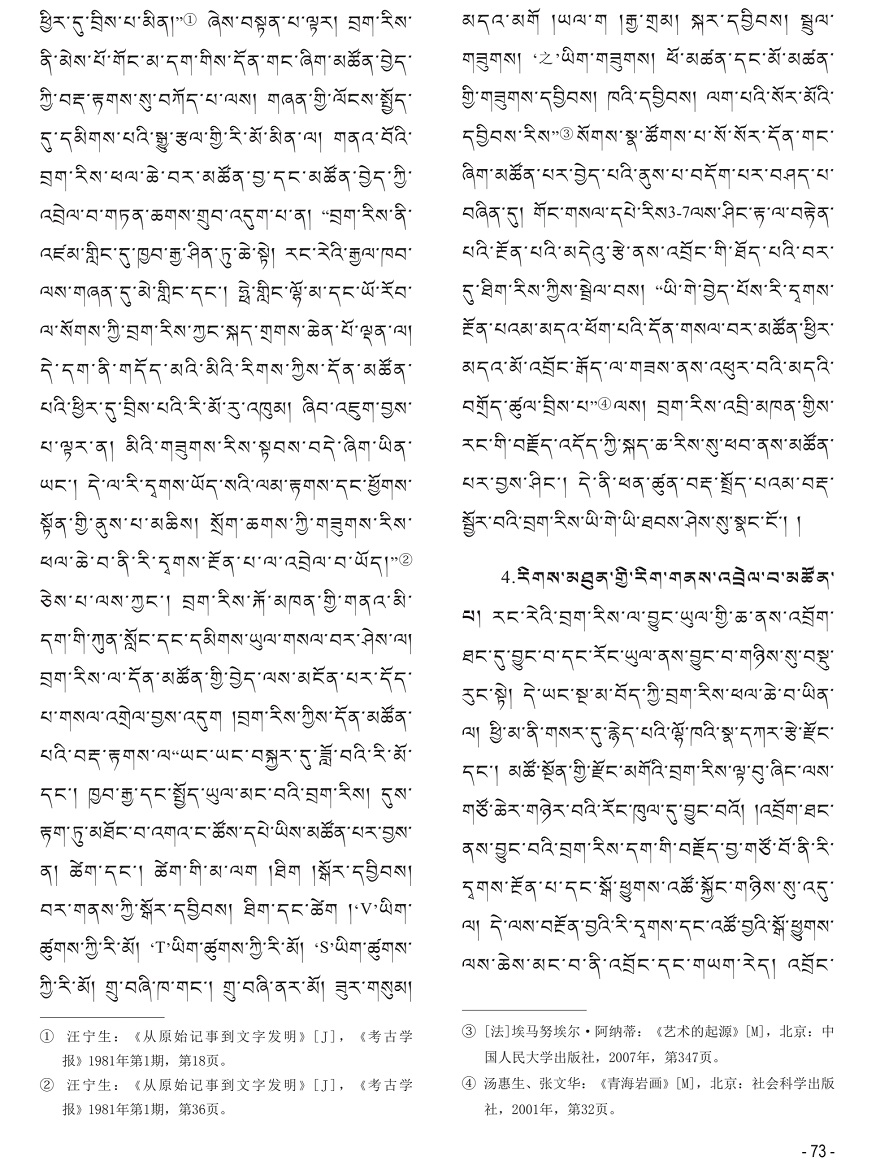 ཕྱིར་དུ་བྲིས་པ་མིན།”① ཞེས་བསྟན་པ་ལྟར། བྲག་རིས་
ནི་མེས་པོ་གོང་མ་དག་གིས་དོན་གང་ཞིག་མཚོན་བྱེད་
ཀྱི་བརྡ་རྟགས་སུ་བཀོད་པ་ལས། གཞན་གྱི་ལོངས་སྤྱོད་
དུ་དམིགས་པའི་སྒྱུ་རྩལ་གྱི་རི་མོ་མིན་ལ། གནའ་བོའི་
བྲག་རིས་ཕལ་ཆེ་བར་མཚོན་བྱ་དང་མཚོན་བྱེད་ཀྱི་
འབྲེལ་བ་གཏན་ཆགས་གྲུབ་འདུག་པ་ན། “བྲག་རིས་ནི་
འཛམ་གླིང་དུ་ཁྱབ་རྒྱ་ཤིན་ཏུ་ཆེ་སྟེ། རང་རེའི་རྒྱལ་ཁབ་
ལས་གཞན་དུ་མེ་གླིང་དང་། ཧྥེ་གླིང་ལྷོ་མ་དང་ཡོ་རོབ་
ལ་སོགས་ཀྱི་བྲག་རིས་ཀྱང་སྐད་གྲགས་ཆེན་པོ་ལྡན་ལ།
དེ་དག་ནི་གདོད་མའི་མིའི་རིགས་ཀྱིས་དོན་མཚོན་
པའི་ཕྱིར་དུ་བྲིས་པའི་རི་མོ་རུ་འཁུམ། ཞིབ་འཇུག་བྱས་
པ་ལྟར་ན། མིའི་གཟུགས་རིས་སྟབས་བདེ་ཞིག་ཡིན་
ཡང་། དེ་ལ་རི་དྭགས་ཡོད་སའི་ལམ་རྟགས་དང་ཕྱོགས་
སྟོན་གྱི་ནུས་པ་མཆིས། སྲོག་ཆགས་ཀྱི་གཟུགས་རིས་
ཕལ་ཆེ་བ་ནི་རི་དྭགས་རྔོན་པ་ལ་འབྲེལ་བ་ཡོད།”②
ཅེས་པ་ལས་ཀྱང་། བྲག་རིས་རྐོ་མཁན་གྱི་གནའ་མི་
དག་གི་ཀུན་སློང་དང་དམིགས་ཡུལ་གསལ་བར་ཤེས་ལ།
བྲག་རིས་ལ་དོན་མཚོན་གྱི་བྱེད་ལས་མངོན་པར་དོད་
པ་གསལ་འགྲེལ་བྱས་འདུག །བྲག་རིས་ཀྱིས་དོན་མཚོན་
པའི་བརྡ་རྟགས་ལ“ཡང་ཡང་བསྐྱར་དུ་ཟློ་བའི་རི་མོ་
དང་། ཁྱབ་རྒྱ་དང་སྤྱོད་ཡུལ་མང་བའི་བྲག་རིས། དུས་
རྟག་ཏུ་མཐོང་བ་འགའ་ང་ཚོས་དཔེ་ཡིས་མཚོན་པར་བྱས་
ན། ཚེག་དང་། ཚེག་གི་མ་ལག །ཐིག །སྒོར་དབྱིབས།
བར་གནས་ཀྱི་སྒོར་དབྱིབས། ཐིག་དང་ཚེག །‘V’ཡིག་
ཚུགས་ཀྱི་རི་མོ། ‘T’ཡིག་ཚུགས་ཀྱི་རི་མོ། ‘S’ཡིག་ཚུགས་
ཀྱི་རི་མོ། གྲུ་བཞི་ཁ་གང་། གྲུ་བཞི་ནར་མོ། ཟུར་གསུམ།
① 汪宁生：《从原始记事到文字发明》[J]，《考古学
报》1981年第1期，第18页。
② 汪宁生：《从原始记事到文字发明》[J]，《考古学
报》1981年第1期，第36页。
མདའ་མགོ །ཡལ་ག །རྒྱ་གྲམ། སྐར་དབྱིབས། སྦྲུལ་
གཟུགས། ‘之’ཡིག་གཟུགས། ཕོ་མཚན་དང་མོ་མཚན་
གྱི་གཟུགས་དབྱིབས། ཁའི་དབྱིབས། ལག་པའི་སོར་མོའི་
དབྱིབས་རིས”③སོགས་སྣ་ཚོགས་པ་སོ་སོར་དོན་གང་
ཞིག་མཚོན་པར་བྱེད་པའི་ནུས་པ་བདོག་པར་བཤད་པ་
བཞིན་དུ། གོང་གསལ་དཔེ་རིས3-7ལས་ཤིང་རྟ་ལ་བརྟེན་
པའི་རྔོན་པའི་མདེའུ་རྩེ་ནས་འབྲོང་གི་ཐོད་པའི་བར་
དུ་ཐིག་རིས་ཀྱིས་སྦྲེལ་བས། “ཡི་གེ་བྱེད་པོས་རི་དྭགས་
རྔོན་པའམ་མདའ་ཕོག་པའི་དོན་གསལ་བར་མཚོན་ཕྱིར་
མདའ་མོ་འབྲོང་རྒོད་ལ་གཟས་ནས་འཕུར་བའི་མདའི་
བགྲོད་ཚུལ་བྲིས་པ”④ལས། བྲག་རིས་འབྲི་མཁན་གྱིས་
རང་གི་བརྗོད་འདོད་ཀྱི་སྐད་ཆ་རིས་སུ་ཕབ་ནས་མཚོན་
པར་བྱས་ཤིང་། དེ་ནི་ཕན་ཚུན་བརྡ་སྤྲོད་པའམ་བརྡ་
སྦྱོར་བའི་བྲག་རིས་ཡི་གེ་ཡི་ཐབས་ཤེས་སུ་སྣང་ངོ་། །
4.རིགས་མཐུན་གྱི་རིག་གནས་འབྲེལ་བ་མཚོན་
པ། རང་རེའི་བྲག་རིས་ལ་བྱུང་ཡུལ་གྱི་ཆ་ནས་འབྲོག་
ཐང་དུ་བྱུང་བ་དང་རོང་ཡུལ་ནས་བྱུང་བ་གཉིས་སུ་བསྡུ་
རུང་སྟེ། དེ་ཡང་སྔ་མ་བོད་ཀྱི་བྲག་རིས་ཕལ་ཆེ་བ་ཡིན་
ལ། ཕྱི་མ་ནི་གསར་དུ་རྙེད་པའི་ལྷོ་ཁའི་སྣ་དཀར་རྩེ་རྫོང་
དང་། མཚོ་སྔོན་གྱི་རྫོང་མགོའི་བྲག་རིས་ལྟ་བུ་ཞིང་ལས་
གཙོ་ཆེར་གཉེར་བའི་རོང་ཁུལ་དུ་བྱུང་བའོ། །འབྲོག་ཐང་
ནས་བྱུང་བའི་བྲག་རིས་དག་གི་བརྗོད་བྱ་གཙོ་བོ་ནི་རི་
དྭགས་རྔོན་པ་དང་སྒོ་ཕྱུགས་འཚོ་སྐྱོང་གཉིས་སུ་འདུ་
ལ། དེ་ལས་བརྔོན་བྱའི་རི་དྭགས་དང་འཚོ་བྱའི་སྒོ་ཕྱུགས་
ལས་ཆེས་མང་བ་ནི་འབྲོང་དང་གཡག་རེད། འབྲོང་
③ [法]埃马努埃尔·阿纳蒂：《艺术的起源》[M]，北京：中
国人民大学出版社，2007年，第347页。
④ 汤惠生、张文华：《青海岩画》[M]，北京：社会科学出版
社，2001年，第32页。
- 73 -